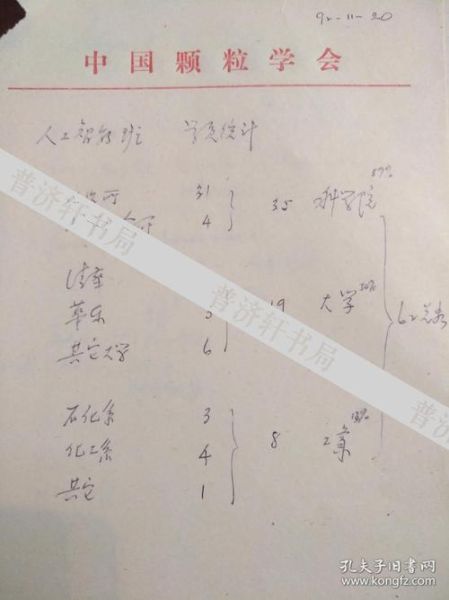 92-11-20
中国颗粒学会
人工智能班 学员统计
所 31
4
35 科学院 57%
清华
华东 5
其它大学 6
19 大学
石化系 3
化工系 4
其它 1
8 工业
62 总数
普济轩书局
普济轩书局
普济
孔夫子旧书网
www.kongfz.com